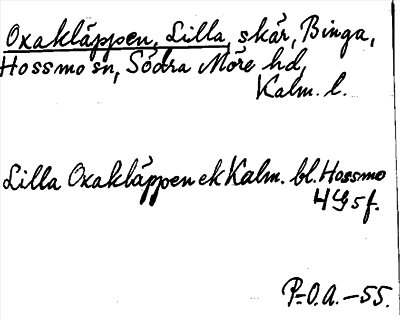 Oxakläppen, Lilla, skär, Binga,
Hossmo sn, Södra Möre hd,
Kalm. l.
Lilla Oxakläppen ek Kalm. bl. Hossmo
4G5f.
P-O.A. -55.